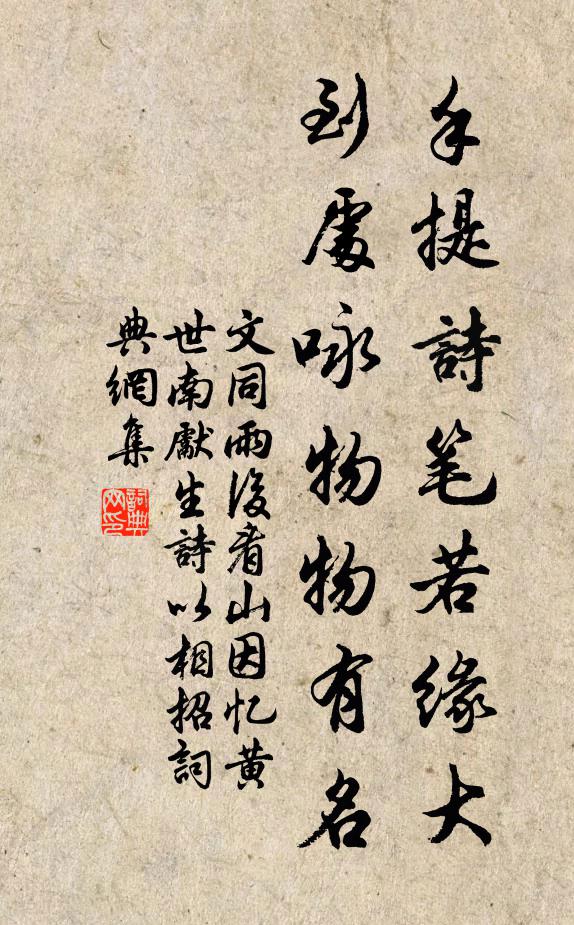 手提詩笔若緣大
到處咏物物有名
文同雨後看山因忆黄
世南獻生詩以相招詞
典網集
詞典网印